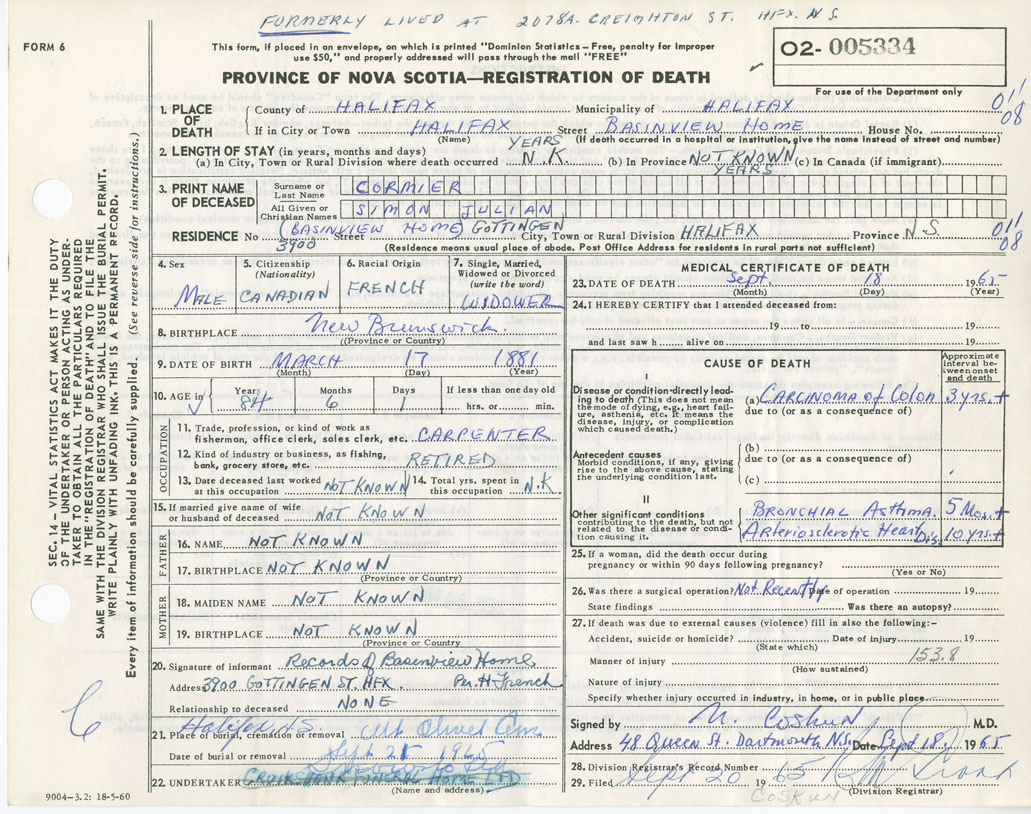 FORMERLY LIVED AT 2078A. CREIGHTON ST. HFX. N.S.
FORM 6
This form, if placed in an envelope, on which is printed "Dominion Statistics—Free, penalty for improper
use $50," and properly addressed will pass through the mail "FREE"
O2- 005334
For use of the Department only
PROVINCE OF NOVA SCOTIA—REGISTRATION OF DEATH
SEC. 14 – VITAL STATISTICS ACT MAKES IT THE DUTY
OF THE UNDERTAKER OR PERSON ACTING AS UNDER-
TAKER TO OBTAIN ALL THE PARTICULARS REQUIRED
IN THE "REGISTRATION OF DEATH" AND TO FILE THE
SAME WITH THE DIVISION REGISTRAR WHO SHALL ISSUE THE BURIAL PERMIT.
WRITE PLAINLY WITH UNFADING INK. THIS IS A PERMANENT RECORD.
Every item of information should be carefully supplied. (See reverse side for instructions.)
1. PLACE OF DEATH
County of HALIFAX Municipality of HALIFAX 011
08
If in City or Town HALIFAX Street BASINVIEW HOME House No.
(Name) (If death occurred in a hospital or institution, give the name instead of street and number)
2. LENGTH OF STAY (in years, months and days)
(a) In City, Town or Rural Division where death occurred YEARS N.K. (b) In Province NOT KNOWN YEARS (c) In Canada (if immigrant)
3. PRINT NAME OF DECEASED
Surname or Last Name CORMIER
All Given or Christian Names SIMON JULIAN
RESIDENCE No. 3900 Street (BASINVIEW HOME) GOTTINGEN City, Town or Rural Division HALIFAX Province N.S. 011
08
(Residence means usual place of abode. Post Office Address for residents in rural parts not sufficient)
4. Sex MALE
5. Citizenship (Nationality) CANADIAN
6. Racial Origin FRENCH
7. Single, Married, Widowed or Divorced (write the word) WIDOWER
8. BIRTHPLACE New Brunswick.
(Province or Country)
9. DATE OF BIRTH MARCH 17 1881
(Month) (Day) (Year)
10. AGE in Years 84 Months 6 Days 1 If less than one day old hrs. or min.
OCCUPATION
11. Trade, profession, or kind of work as
fisherman, office clerk, sales clerk, etc. CARPENTER
12. Kind of industry or business, as fishing,
bank, grocery store, etc. RETIRED
13. Date deceased last worked at this occupation NOT KNOWN
14. Total yrs. spent in this occupation N.K.
15. If married give name of wife or husband of deceased NOT KNOWN
FATHER
16. NAME NOT KNOWN
17. BIRTHPLACE NOT KNOWN
(Province or Country)
MOTHER
18. MAIDEN NAME NOT KNOWN
19. BIRTHPLACE NOT KNOWN
(Province or Country)
20. Signature of informant Records of Basinview Home
Address 3900 GOTTINGEN ST. HFX. Per. H. French
Relationship to deceased NONE
Halifax, N.S.
21. Place of burial, cremation or removal Mt Olivet Cem
Date of burial or removal Sept 21 1965
22. UNDERTAKER CRUIKSHANK FUNERAL HOME LTD
(Name and address)
9004–3.2: 18-5-60
MEDICAL CERTIFICATE OF DEATH
23. DATE OF DEATH Sept. 18 1965
(Month) (Day) (Year)
24. I HEREBY CERTIFY that I attended deceased from:
19 to 19
and last saw h alive on 19
CAUSE OF DEATH
Approximate interval between onset and death
I
Disease or condition directly leading to death (This does not mean the mode of dying, e.g., heart failure, asthenia, etc. It means the disease, injury, or complication which caused death.)
(a) CARCINOMA of Colon 3 yrs. +
due to (or as a consequence of)
Antecedent causes
Morbid conditions, if any, giving rise to the above cause, stating the underlying condition last.
(b)
due to (or as a consequence of)
(c)
II
Other significant conditions contributing to the death, but not related to the disease or condition causing it.
BRONCHIAL Asthma. 5 Mos. +
Arteriosclerotic Heart Dis. 10 yrs +
25. If a woman, did the death occur during
pregnancy or within 90 days following pregnancy?
(Yes or No)
26. Was there a surgical operation? Not Recently Date of operation 19
State findings Was there an autopsy?
27. If death was due to external causes (violence) fill in also the following:–
Accident, suicide or homicide? Date of injury 19
(State which)
153.8
Manner of injury
(How sustained)
Nature of injury
Specify whether injury occurred in industry, in home, or in public place
Signed by M. Coskun M.D.
Address 48 Queen St. Dartmouth N.S. Date Sept 18, 1965
28. Division Registrar's Record Number
29. Filed Sept 20 1965
COSKUN
(Division Registrar)